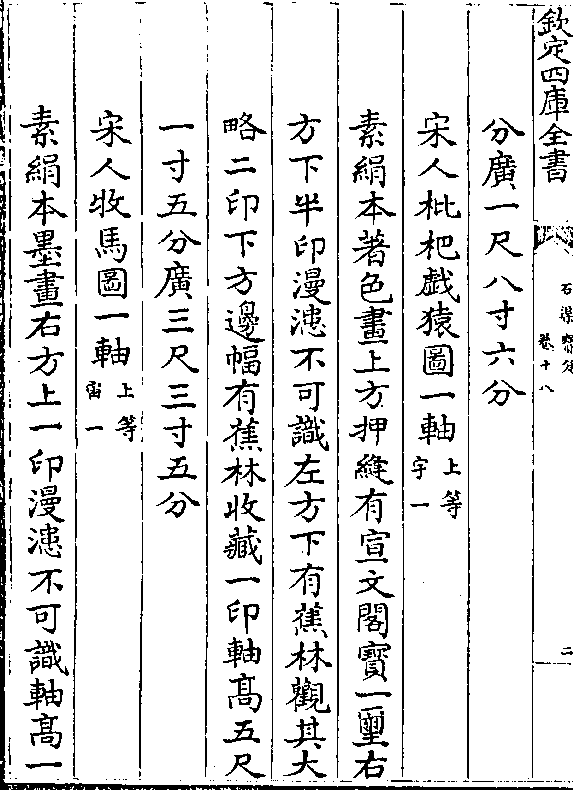 欽定四庫全書
石渠寶笈
卷十八
二
分廣一尺八寸六分
宋人枇杷戯猿圖一軸 上等 宇一
素絹本著色畫上方押縫有宣文閣寶一璽右
方下半印漫漶不可識左方下有蕉林觀其大
略二印下方邊幅有蕉林收藏一印軸髙五尺
一寸五分廣三尺三寸五分
宋人牧馬圖一軸 上等 宙一
素絹本墨畫右方上一印漫漶不可識軸髙一